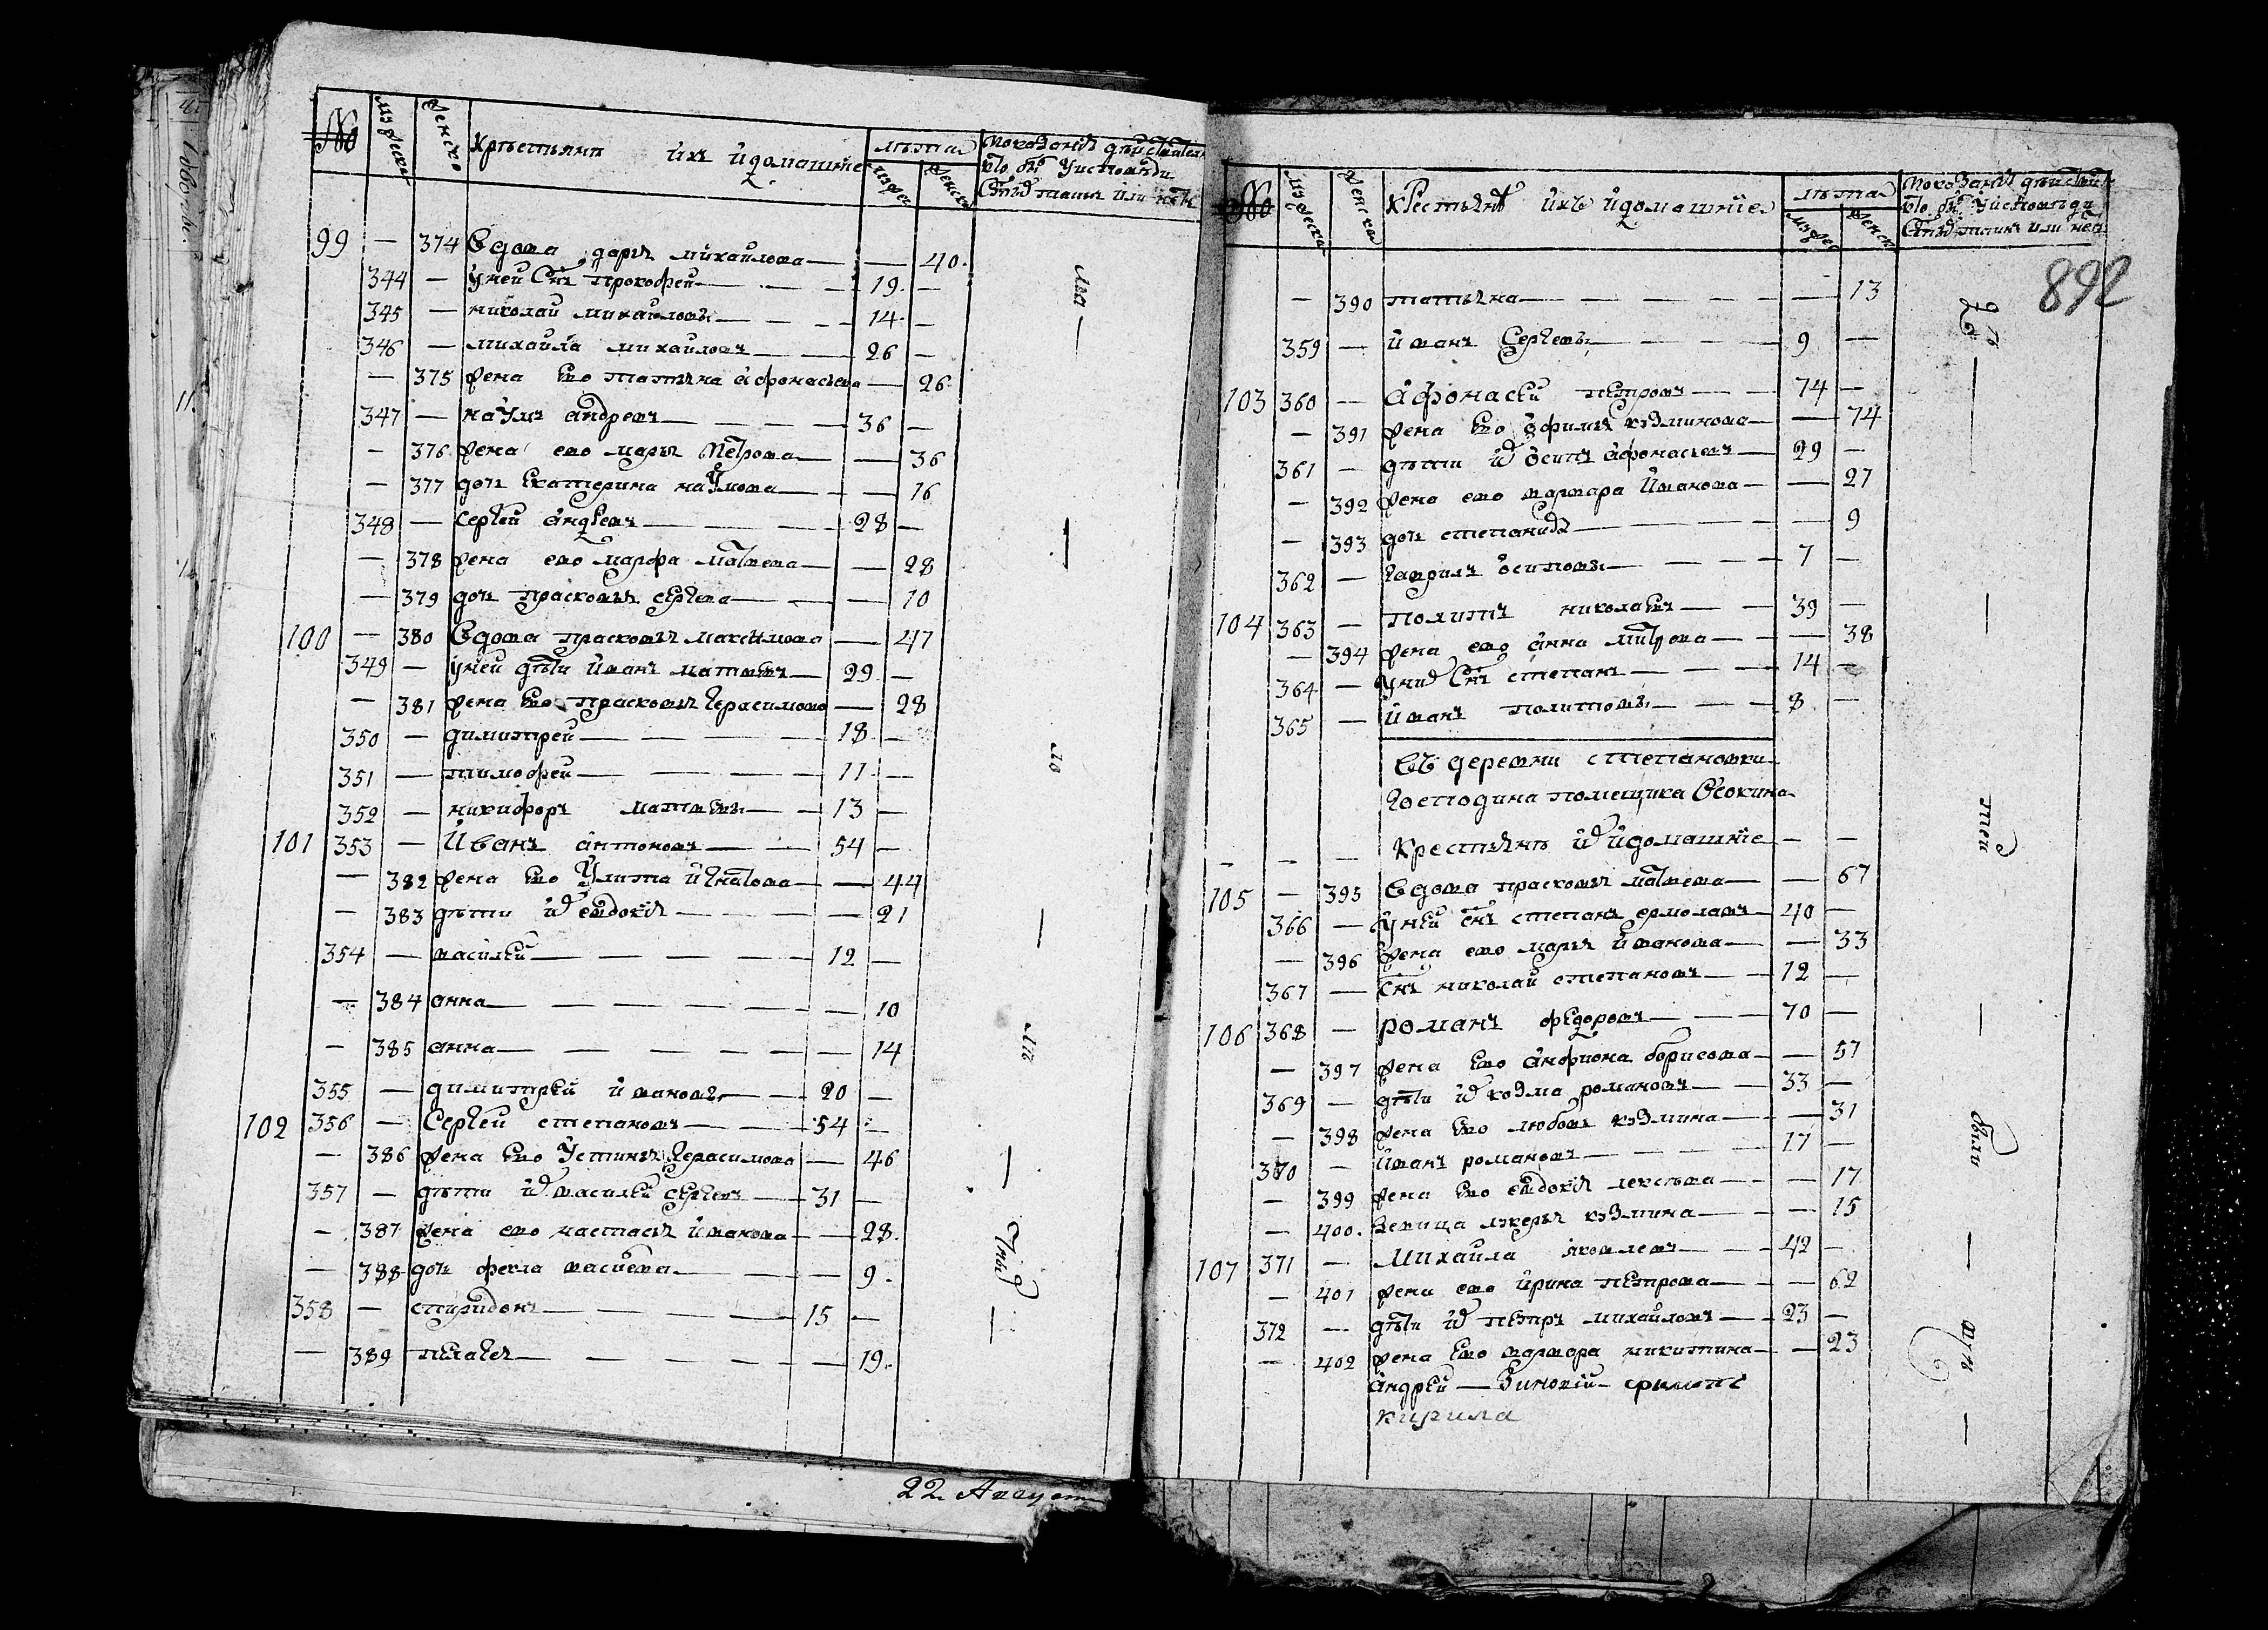 № мужеска женско крѣстьянъ ихъ идомашние лѣта мужес женска
99 — 374 Вдова дарья михайлова — 40
344 — у ней Снъ прокофей — 19 —
345 — николай михайловы — 14 —
346 — михайла михайловъ — 26 —
— 375 жена ево татьяна афонасьева — 26
347 — наумъ андревъ — 36 —
— 376 жена ево марья петрова — 36
— 377 дочь екатерина наумова — 16
348 — сергей андревъ — 28 —
— 378 жена ево марфа матвева — 28
— 379 дочь прасковья сергева — 10
100 — 380 Вдова прасковья максимова — 47
349 — у ней дѣти иванъ матвевъ — 29 —
— 381 жена ево прасковья герасимова — 28
350 — димитрей — 18 —
351 — тимофей — 11 —
352 — никифоръ матвевы — 13 —
101 353 — Иванъ антоновъ — 54 —
— 382 жена ево улита игнатова — 44
— 383 дѣти их евдокія — 21
354 — василей — 12 —
— 384 анна — 10
— 385 анна — 14
355 — димитрей ивановы — 20 —
102 356 — Сергей степановъ — 54 —
— 386 жена ево устинья герасимова — 46
357 — дѣти их василей сергевъ — 31 —
— 387 жена ево настасья иванова — 28
— 388 дочь фекла васильева — 9
358 — спиридонъ — 15 —
— 389 пелагея — 19
22 Август
№ мужеска женска крестьянъ ихъ идомашние лѣта мужес женск
892
— 390 татьяна — 13
359 — иванъ Сергевы — 9 —
103 360 — афонасей петровъ — 74 —
— 391 жена ево офимья кузминова — 74
361 — дѣти их осипъ афонасьевъ — 29 —
— 392 жена ево варвара иванова — 27
— 393 дочь степанида — 9
362 — гаврила осиповы — 7 —
104 363 — политъ николаевъ — 39 —
— 394 жена ево анна митрова — 38
364 — у них Снъ степанъ — 14 —
365 — иванъ политовы — 8 —
Въ деревни степановки
господина помещика Осокина
крестьянъ их идомашние — —
105 — 395 Вдова прасковья матвева — 67
366 — у ней снъ степанъ ермолаевъ — 40 —
— 396 жена ево марья иванова — 33
367 — снъ николай степановъ — 12 —
106 368 — романъ федоровъ — 70 —
— 397 жена ево анфиона борисова — 57
369 — дѣти их козма романовъ — 33 —
— 398 жена ево любовь кузмина — 31
370 — иванъ романовъ — 17 —
— 399 жена ево евдокія лексѣева — 17
— 400. девица лукерья кузмина — 15
107 371 — михайла яковлевъ — 42 —
— 401 жена ево ирина петрова — 62
372 — дѣти их петръ михайловъ — 23 —
— 402 жена ево варвара никитина — 23
андрей — Зиновий —
кирила